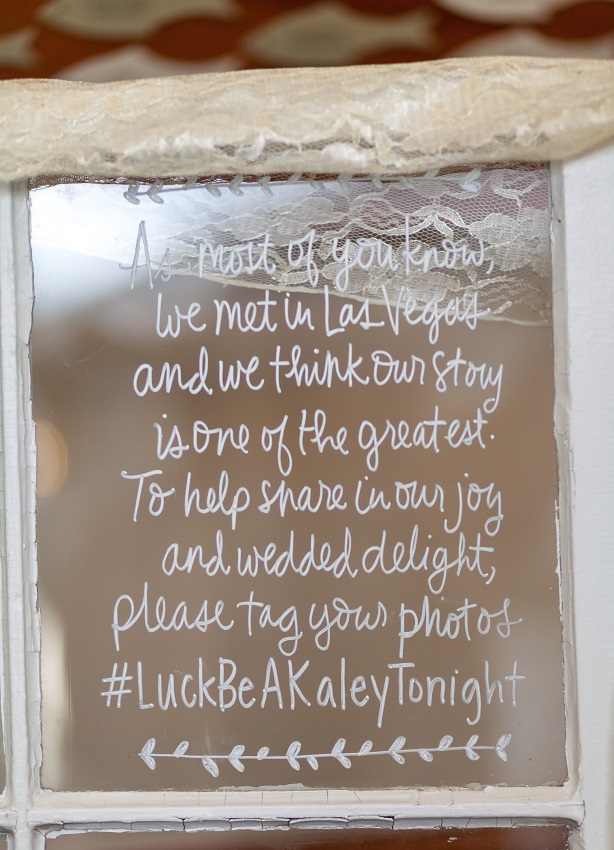 As most of you know,
we met in Las Vegas
and we think our story
is one of the greatest.
To help share in our joy
and wedded delight,
please tag your photos
#LuckBeAKaleyTonight